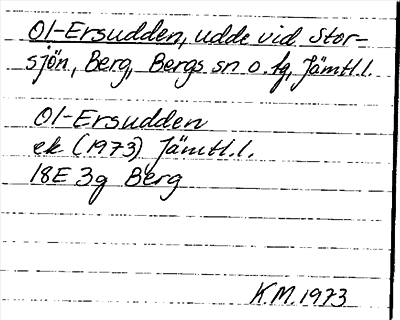 Ol-Ersudden, udde vid Stor-
sjön, Berg, Bergs sn o. fg, Jämtl.l.
Ol-Ersudden
ek (1973) Jämtl.l.
18E 3g Berg
K.M. 1973